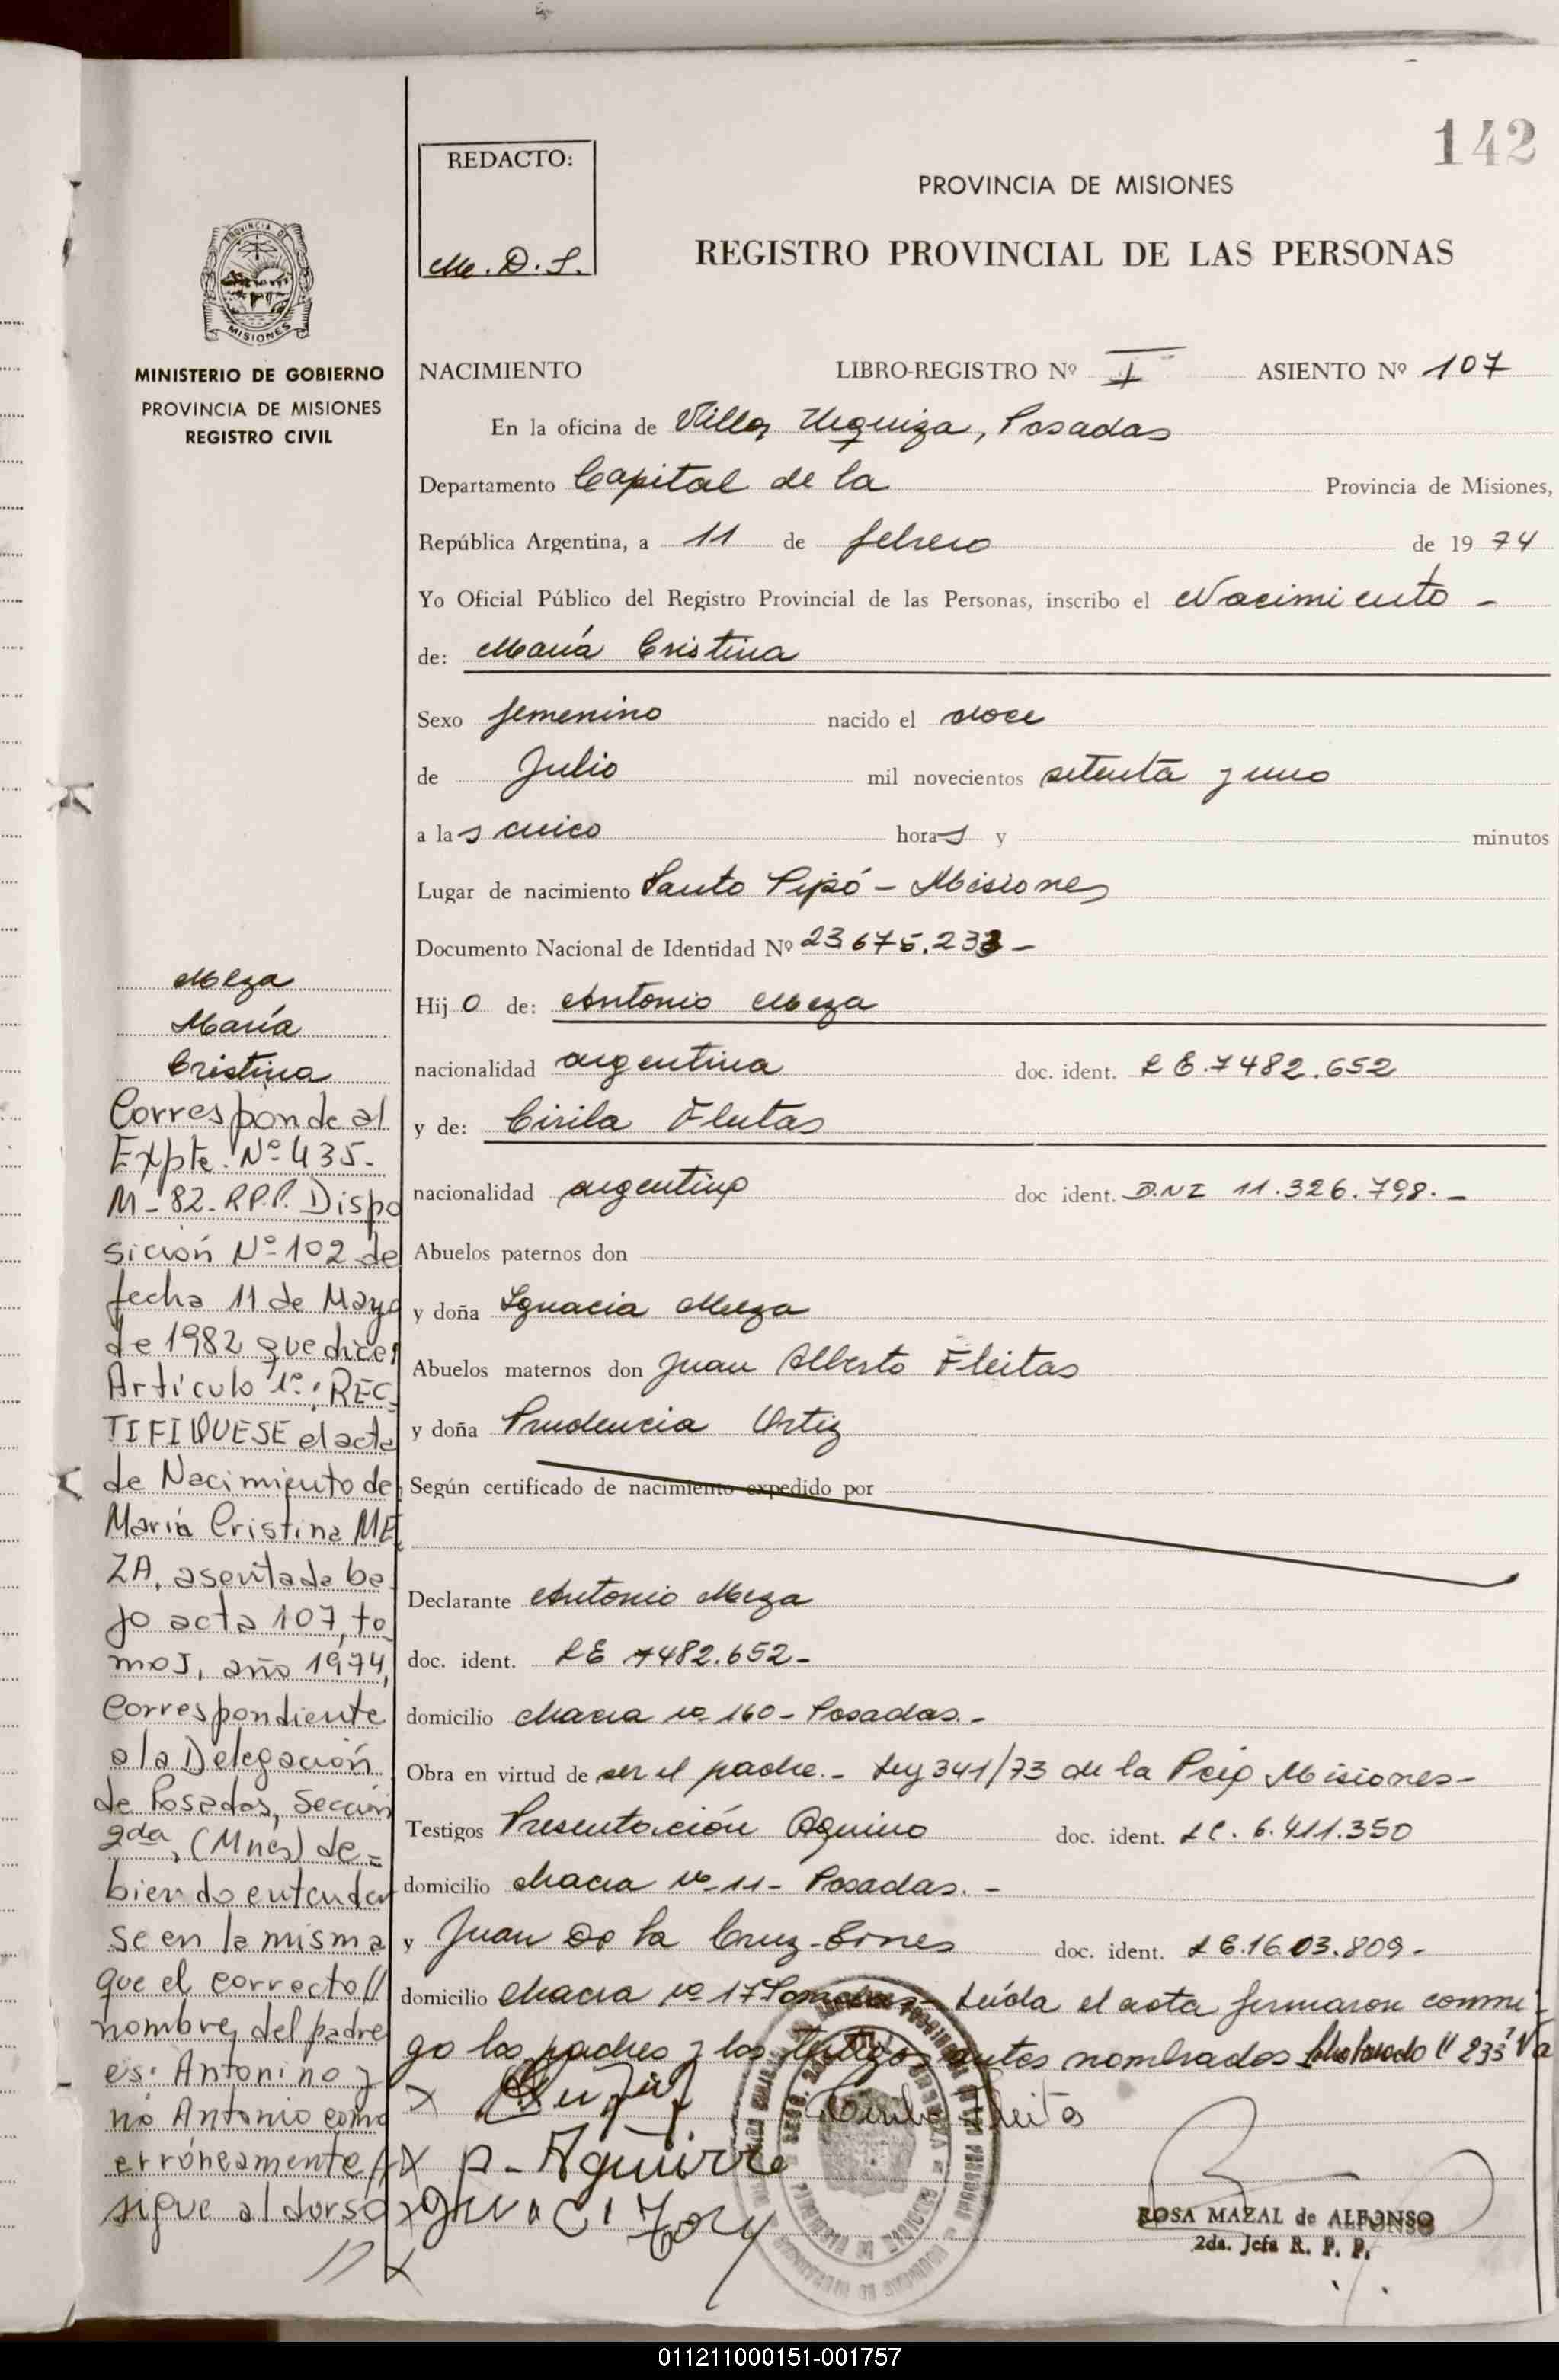 142
REDACTO:
M. D. S.
PROVINCIA DE MISIONES
REGISTRO PROVINCIAL DE LAS PERSONAS
PROVINCIA DE
MISIONES
MINISTERIO DE GOBIERNO
PROVINCIA DE MISIONES
REGISTRO CIVIL
NACIMIENTO LIBRO-REGISTRO Nº I ASIENTO Nº 107
En la oficina de Villa Urquiza, Posadas
Departamento Capital de la Provincia de Misiones,
República Argentina, a 11 de febrero de 1974
Yo Oficial Público del Registro Provincial de las Personas, inscribo el Nacimiento -
de: María Cristina
Sexo femenino nacido el doce
de Julio mil novecientos setenta y uno
a las cinco horas y minutos
Lugar de nacimiento Santo Pipó - Misiones
Documento Nacional de Identidad Nº 23675.233 -
Hijo de: Antonio Meza
nacionalidad argentina doc. ident. LE. 7482.652
y de: Cirila Fleitas
nacionalidad argentina doc ident. D.N.I 11.326.798. -
Abuelos paternos don
y doña Ignacia Meza
Abuelos maternos don Juan Alberto Fleitas
y doña Prudencia Ortiz
Según certificado de nacimiento expedido por
Declarante Antonio Meza
doc. ident. LE 7482.652-
domicilio chacra nº 160 - Posadas. -
Obra en virtud de ser el padre. - Ley 341/73 de la Pcia Misiones-
Testigos Presentación Aquino doc. ident. LC. 6.411.350
domicilio chacra nº 11 - Posadas. -
y Juan De la Cruz doc. ident. LE. 16.03.809-
domicilio chacra nº 17 Posadas - Leída el acta firmaron conmi-
go los padres y los testigos antes nombrados 233 Va
Cirila Fleitas
p. Aguirre
ROSA MAZAL de ALFONSO
2da. Jefa R. P. P.
Meza
María
Cristina
Corresponde al
Expte. Nº 435-
M-82-R.P.P. Dispo
sición Nº 102 de
fecha 11 de Mayo
de 1982 que dice:
Artículo 1º: REC-
TIFIQUESE el acta
de Nacimiento de
María Cristina ME
ZA, asentada ba-
jo acta 107, to-
mo I, año 1974,
Correspondiente
a la Delegación
de Posadas, Sección
2da, (Mnes) de=
biendo entender
se en la misma
que el correcto//
nombre del padre
es: Antonino y
no Antonio como
erróneamente //
sigue al dorso
011211000151-001757